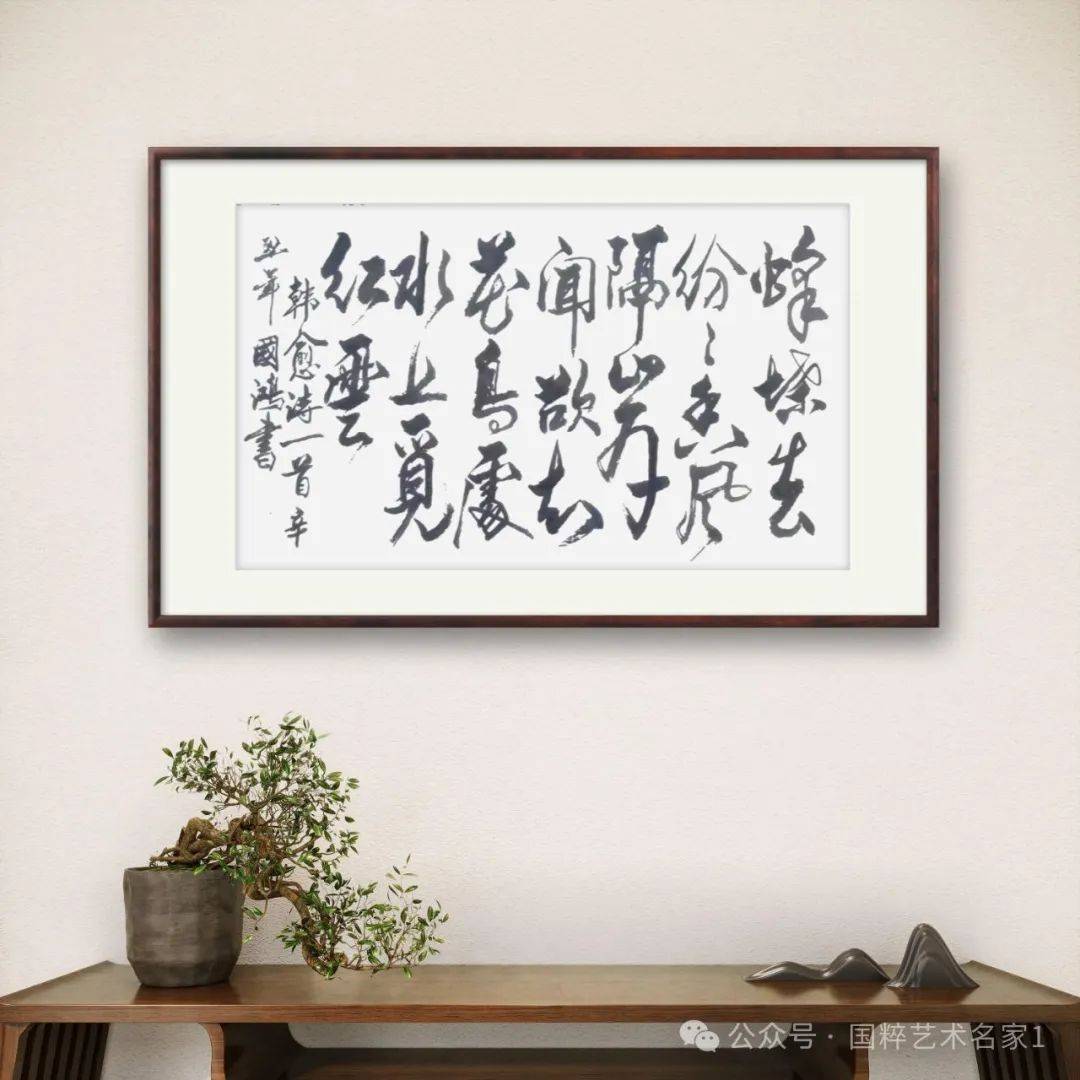 蜂蝶去
纷〻香风
隔岸
闻欲知
花島處
水上覓
红雲
韩愈诗一首辛
丑年國鴻書
公众号 · 国粹艺术名家1